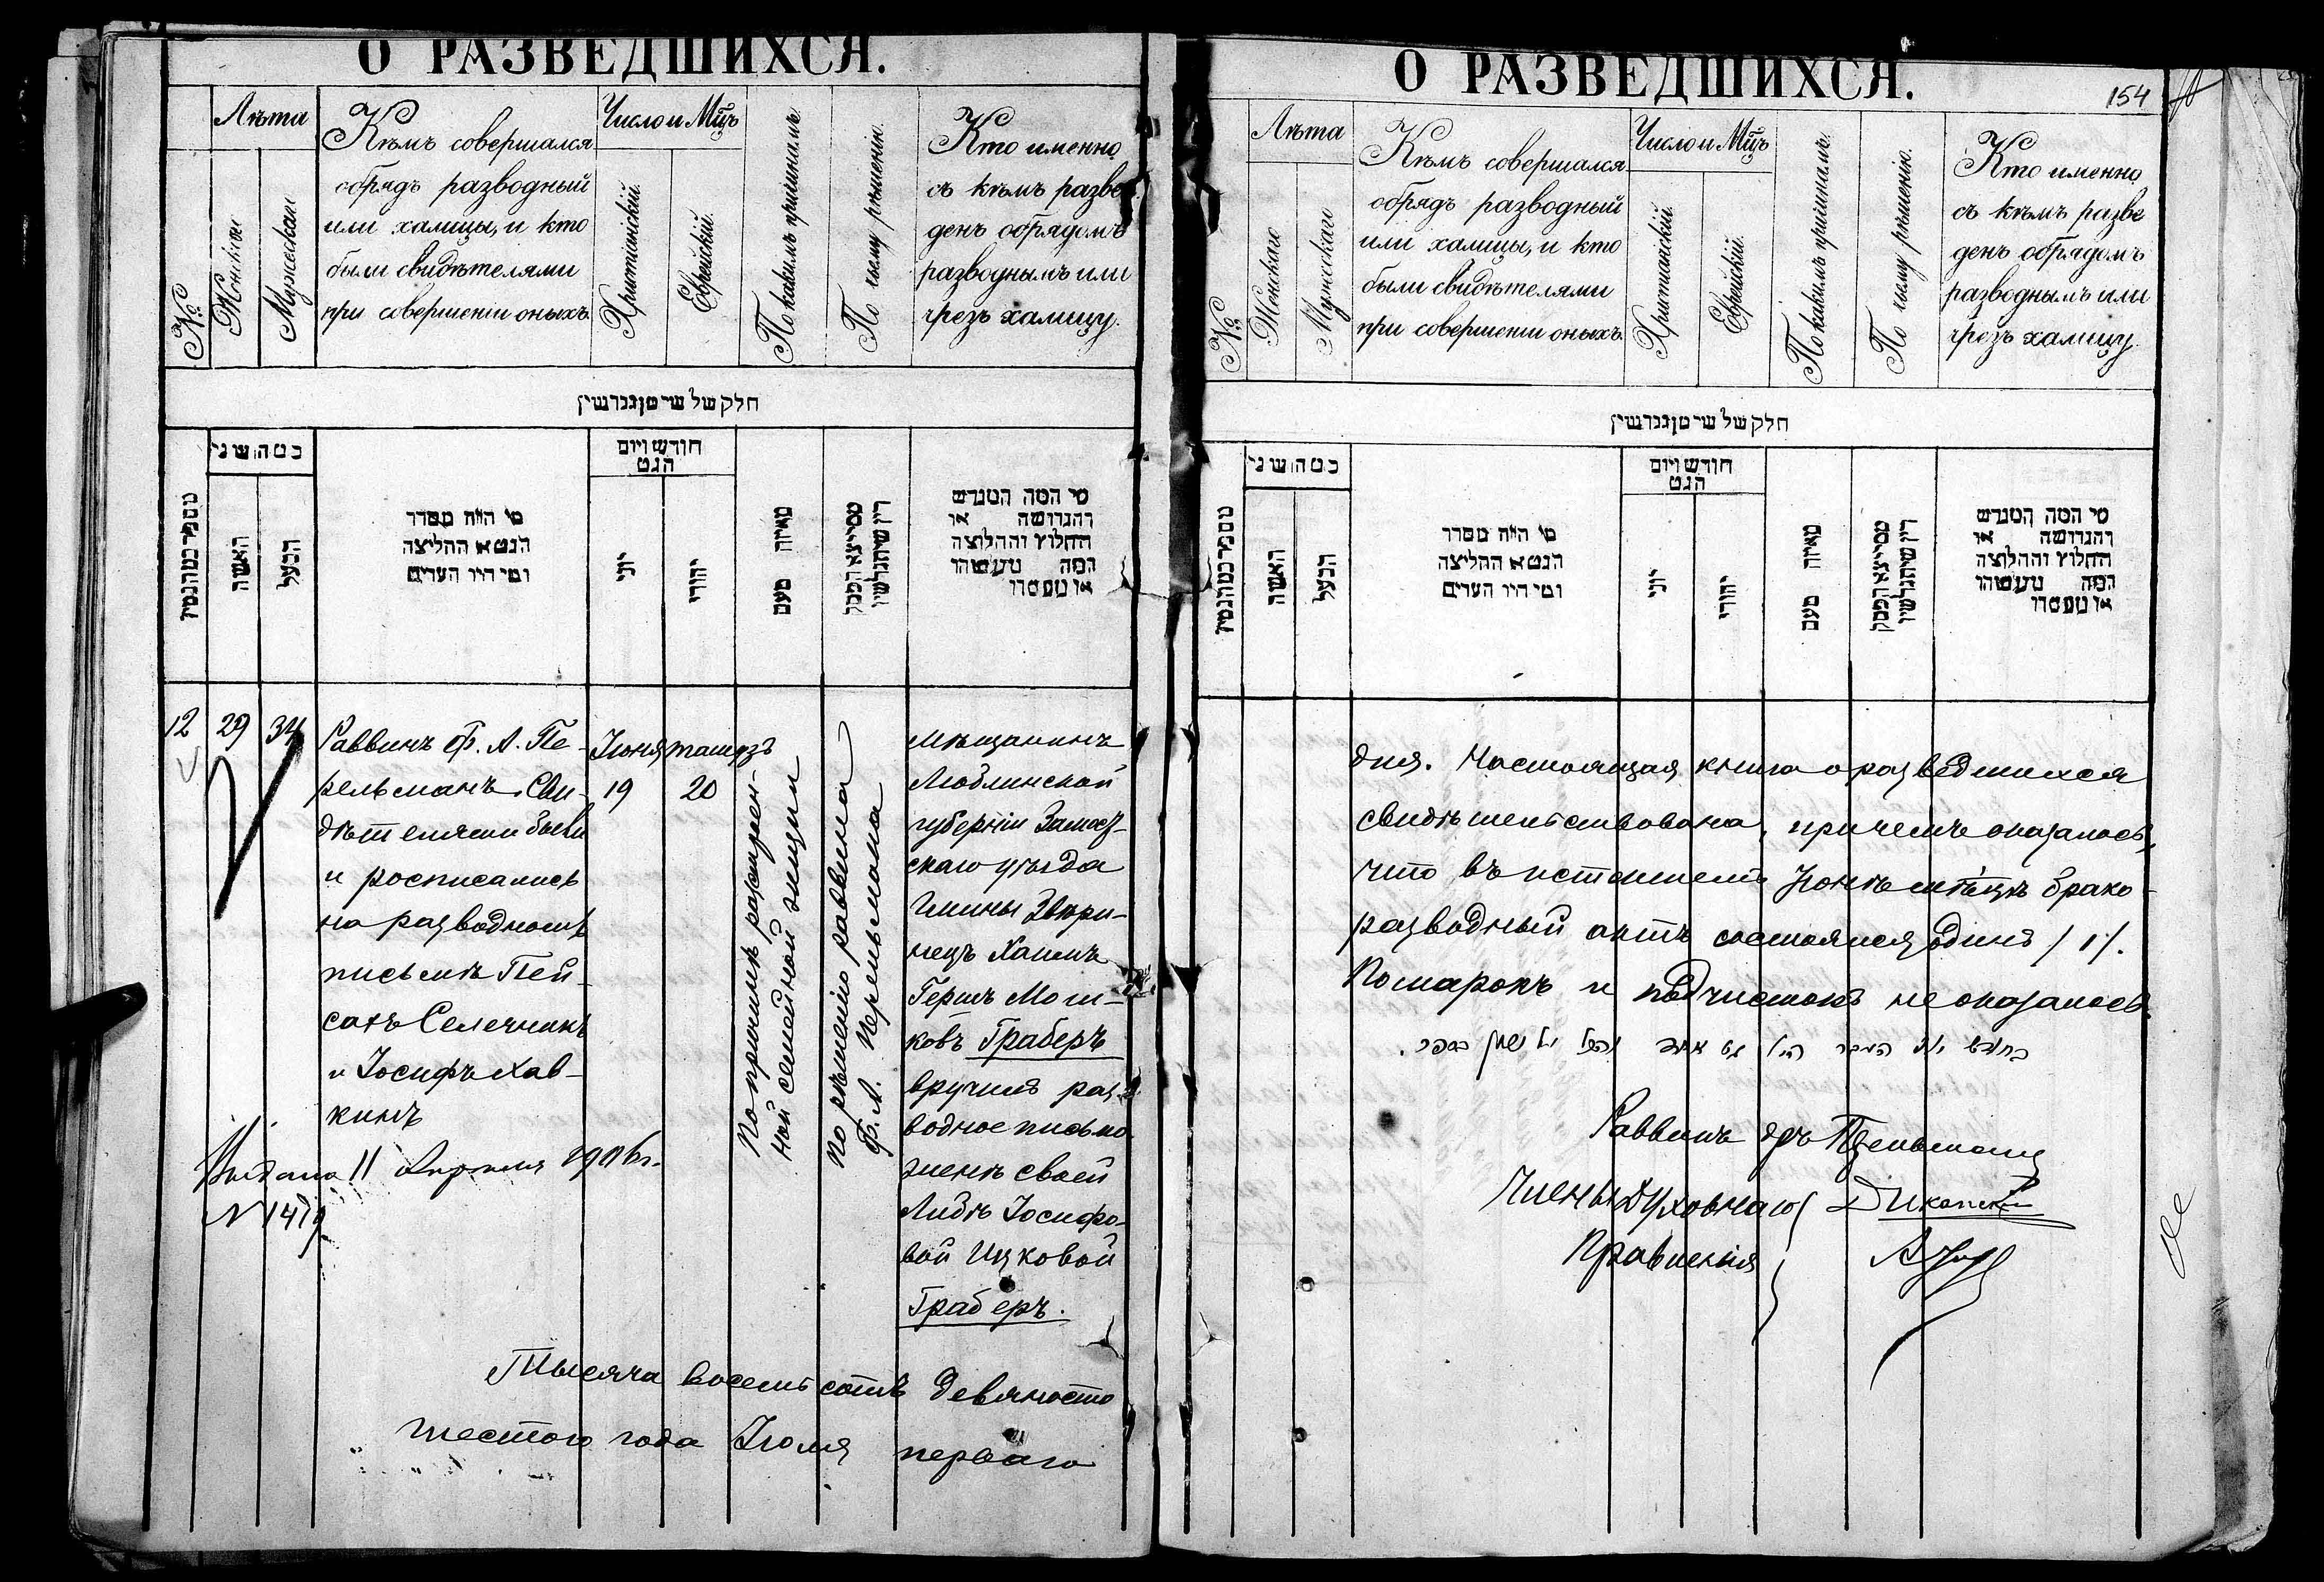 О РАЗВЕДШИХСЯ.
№
Лѣта
Женскаго
Мужескаго
Кѣмъ совершался
обрядъ разводный
или халицы, и кто
были свидѣтелями
при совершеніи оныхъ.
Число и Мц̃ъ
Христіанскій.
Еврейскій.
По какимъ причинамъ.
По чьему рѣшенію.
Кто именно
съ кѣмъ разве
денъ обрядомъ
разводнымъ или
чрезъ халицу.
חלק של
כמה שני
האשה
הבעל
מי היה מסדר
הגט א החליצה
ומי היו העדים
חודש ויום
הגט
יוני
יהודי
מאיזה טעם
מי המה המגרש
והגרושה או
החלוץ והחלוצה
המה מעשהו
או
12
29
34
Раввинъ Ф. А. Пе-
рельманъ. Сви-
дѣтелями были
и росписались
на разводномъ
письмѣ Пей-
сахъ Селечникъ
и Іосифъ Хав-
кинъ
Іюня
19
тамузъ
20
По причинѣ разстроен-
ной семейной жизни
По рѣшенію раввина
Ф. А. Перельмана
Мѣщанинъ
Люблинской
губерніи Замост-
скаго уѣзда
Гмины Звѣри-
нецъ Хаимъ
Гершъ Мош-
ковъ Граберъ
вручилъ раз-
водное письмо
женѣ своей
Либѣ Іосифо-
вой Ицковой
Граберъ.
Выдана 11 Апрѣля 1906 г.
№ 1419
Тысяча восемьсотъ девяносто
шестого года Іюля перваго
О РАЗВЕДШИХСЯ.
154
№
Лѣта
Женскаго
Мужескаго
Кѣмъ совершался
обрядъ разводный
или халицы, и кто
были свидѣтелями
при совершеніи оныхъ.
Число и Мц̃ъ
Христіанскій.
Еврейскій.
По какимъ причинамъ.
По чьему рѣшенію.
Кто именно
съ кѣмъ разве
денъ обрядомъ
разводнымъ или
чрезъ халицу.
חלק של
כמה שני
האשה
הבעל
מי היה מסדר
הגט א החליצה
ומי היו העדים
חודש ויום
הגט
יוני
יהודי
מאיזה טעם
מי המה המגרש
והגרושה או
החלוץ והחלוצה
המה מעשהו
או
дня. Настоящая книга о разведшихся
свидѣтельствована, причемъ оказалось,
что въ истекшемъ Іюнѣ мѣсяцѣ брако-
разводный актъ состоялся одинъ /1/.
Помарокъ и подчистокъ не оказалось.
Раввинъ др Перельманъ
Члены Духовнаго
Правленія